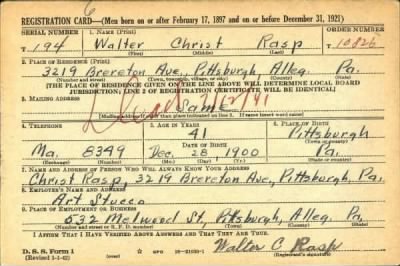 6
REGISTRATION CARD—(Men born on or after February 17, 1897 and on or before December 31, 1921)
SERIAL NUMBER 1. NAME (Print) ORDER NUMBER
T 194 Walter Christ Rasp T 10826
(First) (Middle) (Last)
2. PLACE OF RESIDENCE (Print)
3219 Brereton Ave, Pittsburgh, Alleg. Pa.
(Number and street) (Town, township, village, or city) (County) (State)
[THE PLACE OF RESIDENCE GIVEN ON THE LINE ABOVE WILL DETERMINE LOCAL BOARD
JURISDICTION; LINE 2 OF REGISTRATION CERTIFICATE WILL BE IDENTICAL]
3. MAILING ADDRESS
Same
[Mailing address if other than place indicated on line 2. If same insert word same]
4. TELEPHONE 5. AGE IN YEARS 6. PLACE OF BIRTH
41 Pittsburgh
DATE OF BIRTH (Town or county)
Ma. 8349 Dec. 28 1900 Pa.
(Exchange) (Number) (Mo.) (Day) (Yr.) (State or country)
7. NAME AND ADDRESS OF PERSON WHO WILL ALWAYS KNOW YOUR ADDRESS
Christ Rasp, 3219 Brereton Ave., Pittsburgh, Pa.
8. EMPLOYER'S NAME AND ADDRESS
Art Stucco
9. PLACE OF EMPLOYMENT OR BUSINESS
532 Melwood St, Pittsburgh, Alleg. Pa.
(Number and street or R. F. D. number) (Town) (County) (State)
I AFFIRM THAT I HAVE VERIFIED ABOVE ANSWERS AND THAT THEY ARE TRUE.
D. S. S. Form 1
(Revised 1-1-42) (over) GPO 16-21630-1
Walter C Rasp
(Registrant's signature)